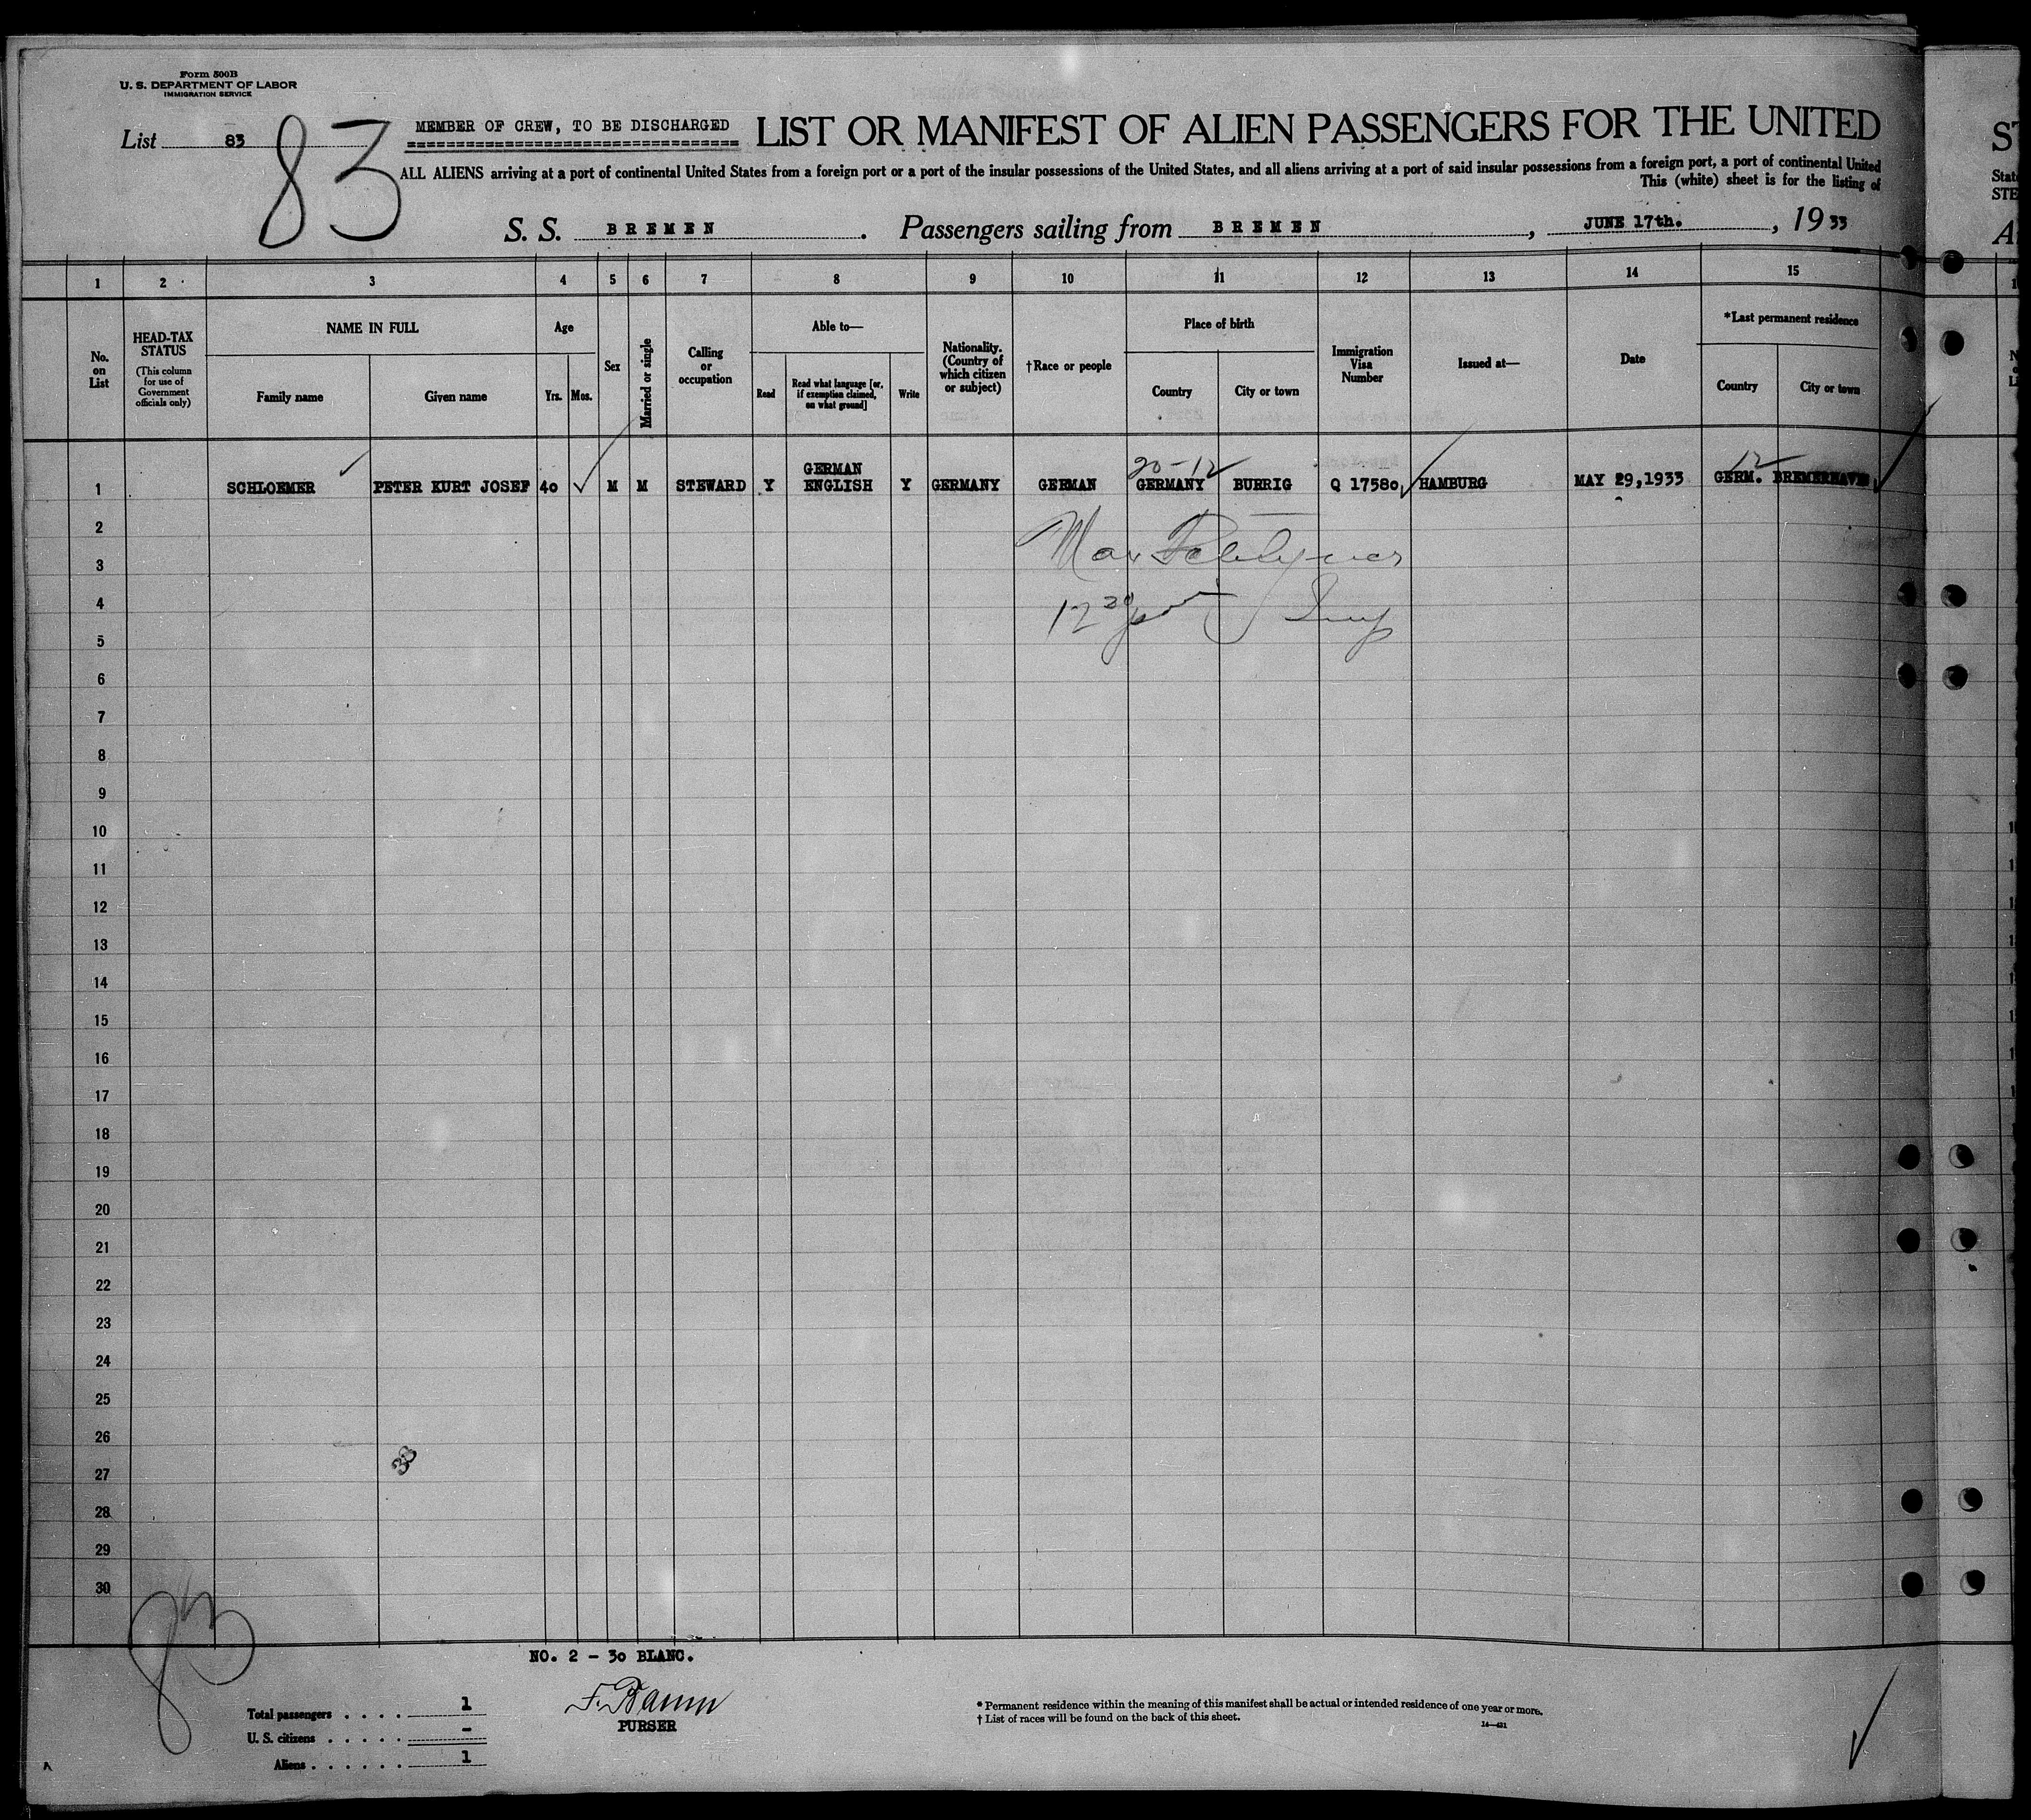 Form 500B
U. S. DEPARTMENT OF LABOR
IMMIGRATION SERVICE
List 83
83
MEMBER OF CREW, TO BE DISCHARGED
LIST OR MANIFEST OF ALIEN PASSENGERS FOR THE UNITED
ALL ALIENS arriving at a port of continental United States from a foreign port or a port of the insular possessions of the United States, and all aliens arriving at a port of said insular possessions from a foreign port, a port of continental United
This (white) sheet is for the listing of
S. S. BREMEN. Passengers sailing from BREMEN, JUNE 17th., 1933
1 2 3 4 5 6 7 8 9 10 11 12 13 14 15
No. on List
HEAD-TAX STATUS
(This column for use of Government officials only)
NAME IN FULL
Family name
Given name
Age
Yrs. Mos.
Sex
Married or single
Calling or occupation
Able to—
Read
Read what language [or, if exemption claimed, on what ground]
Write
Nationality. (Country of which citizen or subject)
†Race or people
Place of birth
Country
City or town
Immigration Visa Number
Issued at—
Date
*Last permanent residence
Country
City or town
20-12
12
1 SCHLOEMER PETER KURT JOSEF 40 ✓ M M STEWARD Y GERMAN ENGLISH Y GERMANY GERMAN GERMANY BURRIG Q 17580 HAMBURG MAY 29,1933 GERM. BREMERHAVEN
2
3
4
5
6
7
8
9
10
11
12
13
14
15
16
17
18
19
20
21
22
23
24
25
26
27
28
29
30
83
NO. 2 - 30 BLANC.
F. Baum
PURSER
Total passengers . . . . 1
U. S. citizens . . . . . -
Aliens . . . . . . 1
* Permanent residence within the meaning of this manifest shall be actual or intended residence of one year or more.
† List of races will be found on the back of this sheet.
14—421